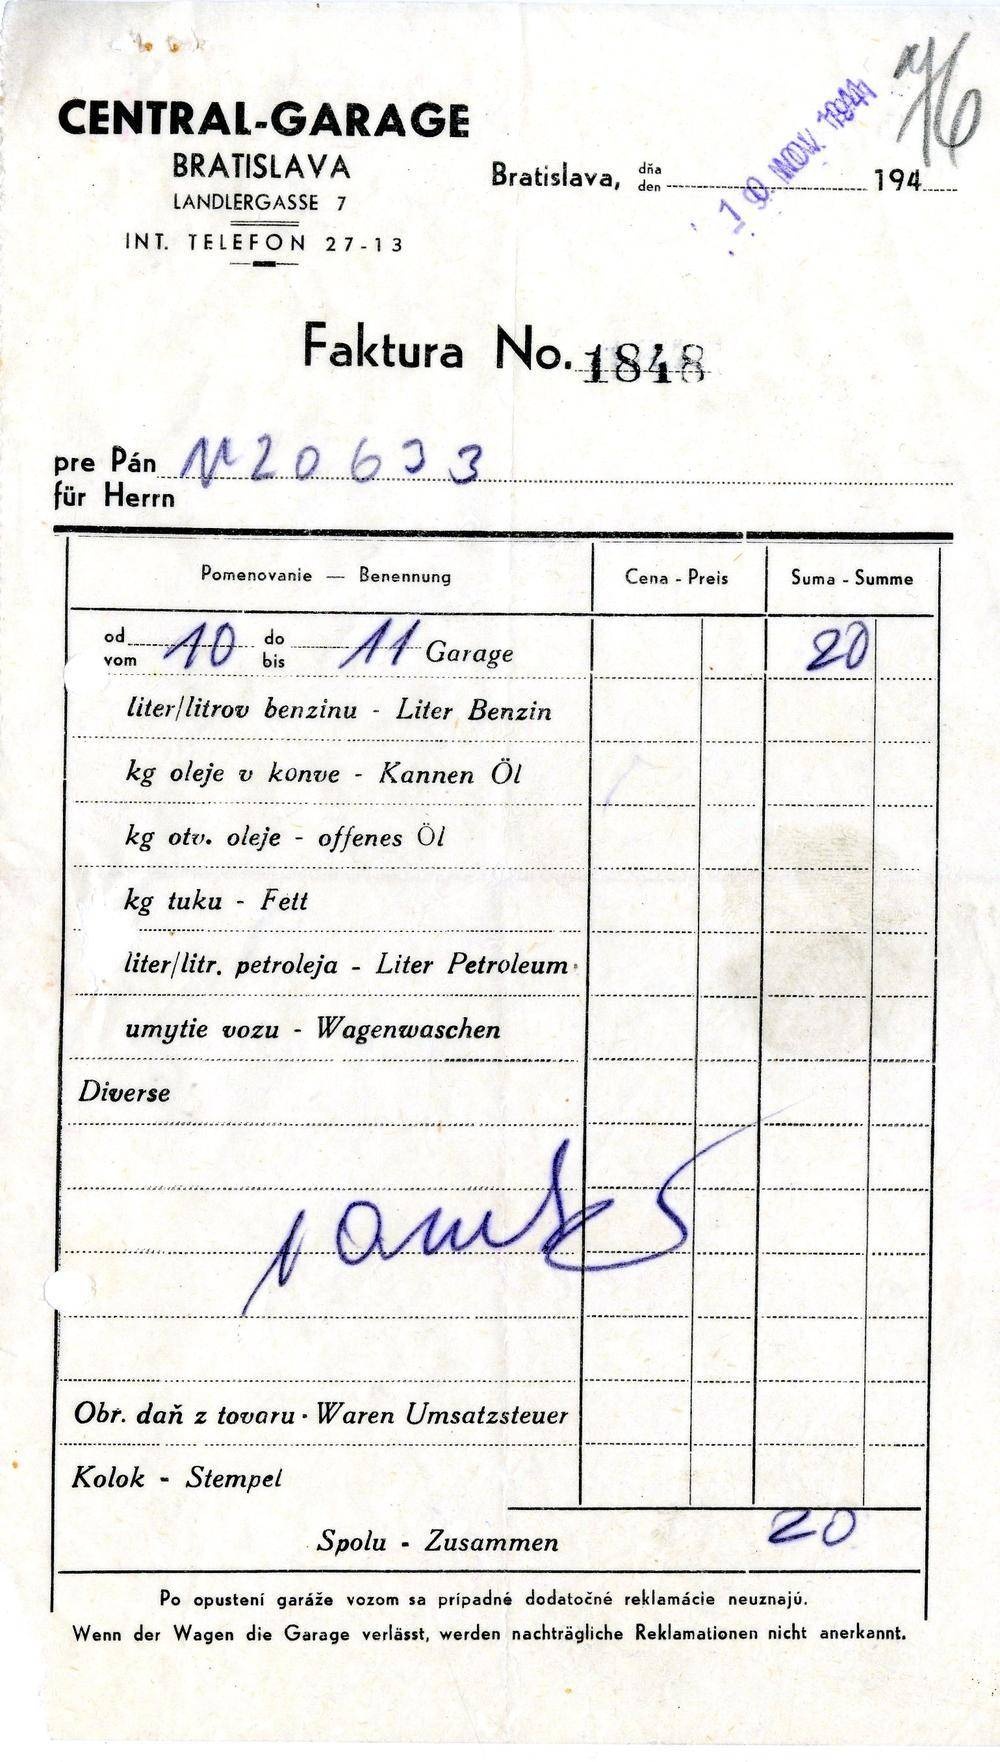 76
CENTRAL-GARAGE
BRATISLAVA
LANDLERGASSE 7
INT. TELEFON 27-13
Bratislava, dňa
den 194
10 NOV. 1941
Faktura No. 1848
pre Pán N 20633
für Herrn
Pomenovanie — Benennung Cena - Preis Suma - Summe
od 10 do 11 Garage 20
vom bis
liter/litrov benzinu - Liter Benzin
kg oleje v konve - Kannen Öl
kg otv. oleje - offenes Öl
kg tuku - Fett
liter/litr. petroleja - Liter Petroleum
umytie vozu - Wagenwaschen
Diverse
Obr. daň z tovaru · Waren Umsatzsteuer
Kolok - Stempel
Spolu - Zusammen 20
Po opustení garáže vozom sa prípadné dodatočné reklamácie neuznajú.
Wenn der Wagen die Garage verlässt, werden nachträgliche Reklamationen nicht anerkannt.